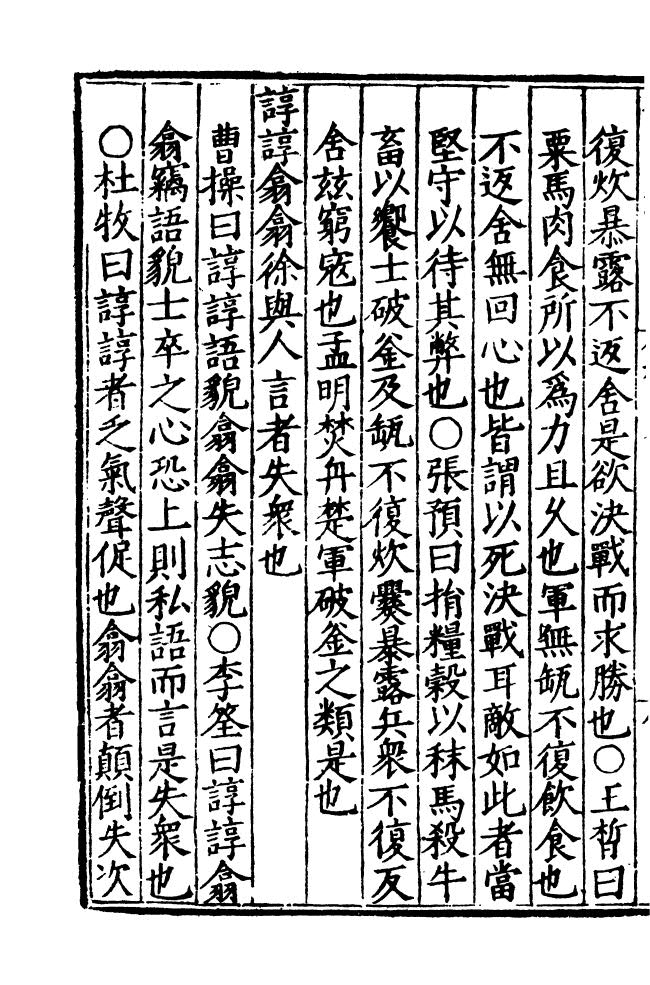 復炊暴露不返舍是欲決戰而求勝也〇王晳曰
粟馬肉食所以爲力且久也軍無缻不復飲食也
不返舍無回心也皆謂以死決戰耳敵如此者當
堅守以待其弊也〇張預曰捐糧穀以秣馬殺牛
畜以饗士破釜及缻不復炊爨暴露兵衆不復反
舍兹窮寇也孟明焚舟楚軍破釜之類是也
諄諄翕翕徐與人言者失衆也
曹操曰諄諄語貌翕翕失志貌〇李筌曰諄諄翕
翕竊語貌士卒之心恐上則私語而言是失衆也
〇杜牧曰諄諄者乏氣聲促也翕翕者顛倒失次